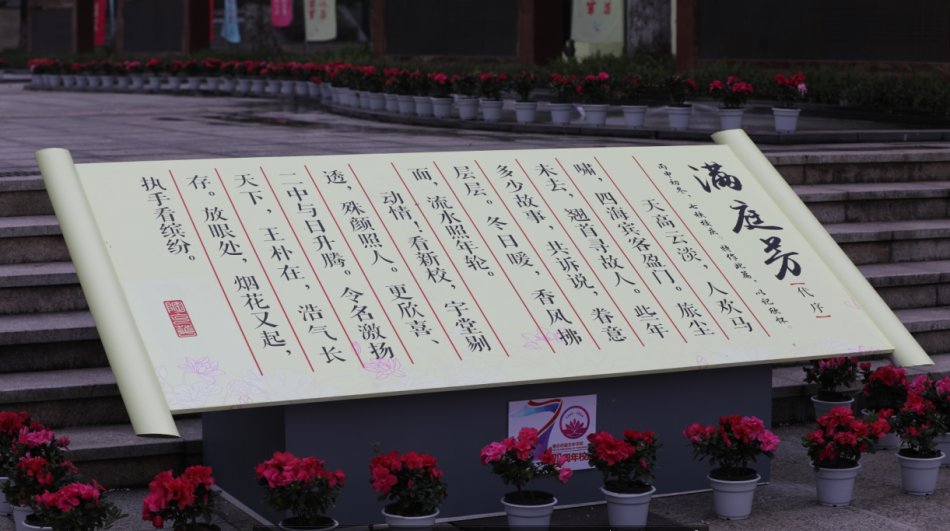 满庭芳
【代序】
丙申初冬，七秩华诞，特作此篇，以记欣怀。
天高云淡，人欢马
啸，四海宾客盈门。旅尘
未去，翘首寻故人。此年
多少故事，共诉说，春意
层层。冬日暖，香风拂
面，流水照年轮。
动情，看新校，宇堂剔
透，殊颜照人。更欣喜、
二中与日升腾。令名激扬
天下，王朴在，浩气长
存。放眼处，烟花又起，
执手看缤纷。